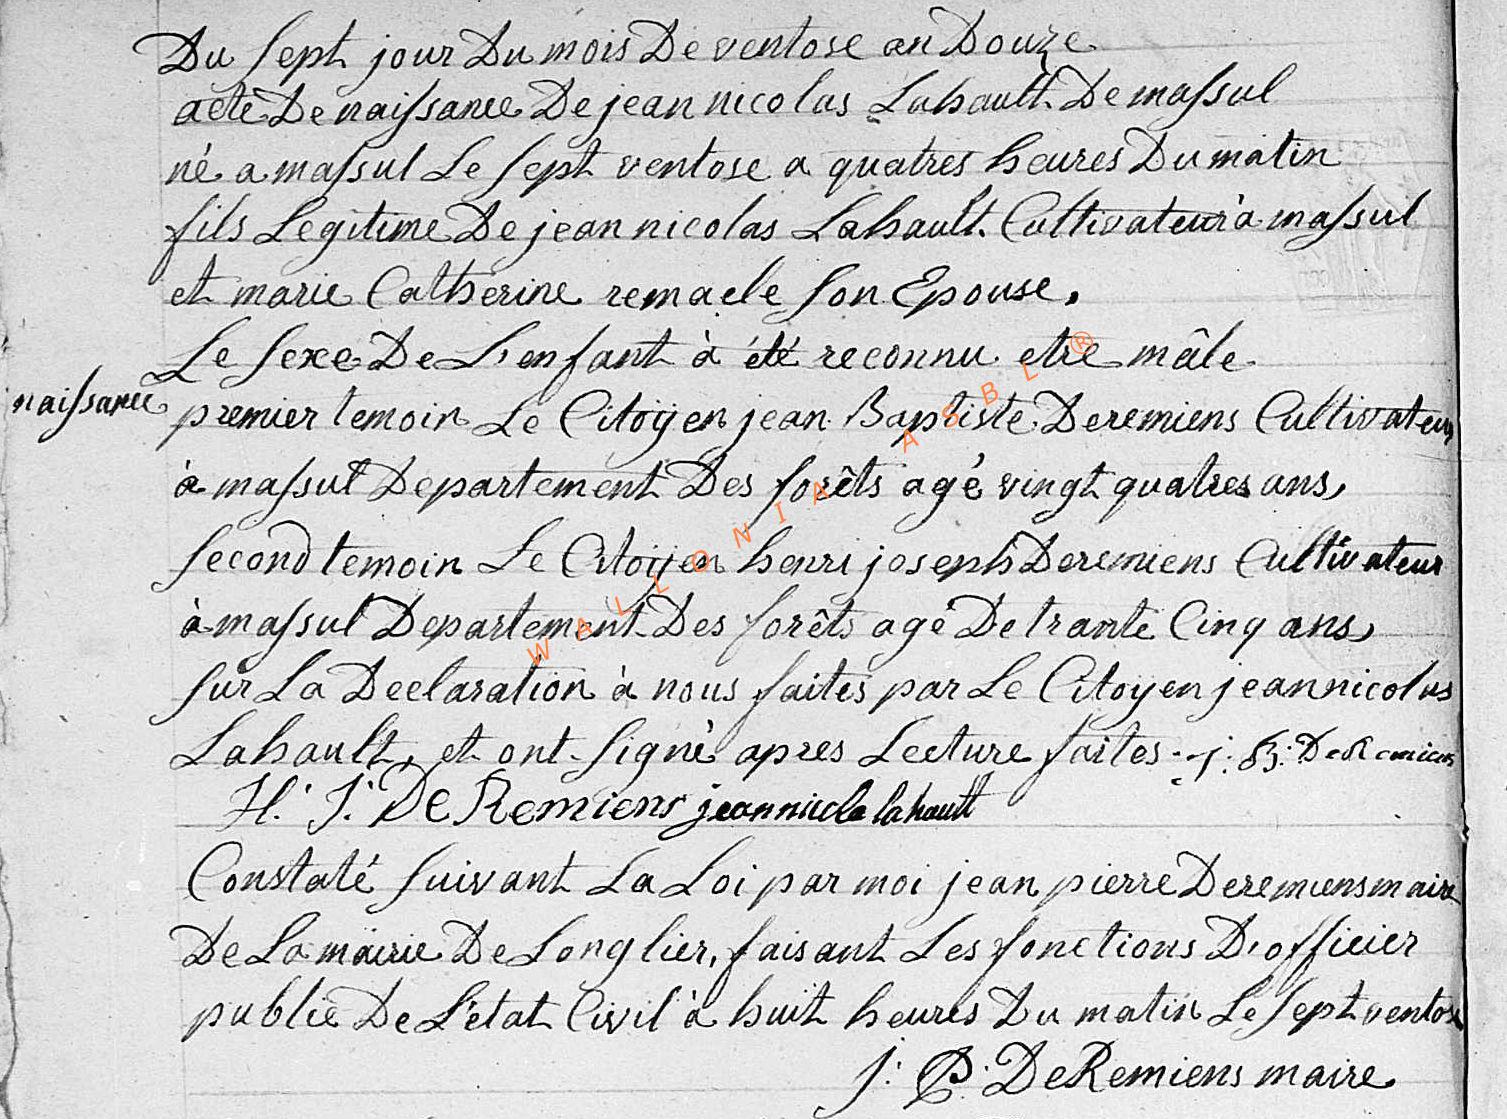 Du Sept jour Du mois De ventose an Douze
acte De naissance De jean nicolas Lahault De massul
né a massul Le Sept ventose a quatres heures Du matin
fils Legitime De jean nicolas Lahault Cultivateur à massul
et marie Catherine remacle Son Epouse.
Le Sexe De L'enfant à été reconnu etre mâle
naissance
premier temoin Le Citoÿen jean Baptiste Deremiens Cultivateur
à massul Departement Des forêts agé vingt quatres ans,
Second temoin Le Citoÿen henri joseph Deremiens Cultivateur
à massul Departement Des forêts agé De trante Cinq ans,
Sur La Declaration à nous faites par Le Citoyen jean nicolas
Lahault, et ont Signé apres Lecture faites. J: B: DeRemiens
H. J. DeRemiens jean nicola lahault
Constaté Suivant La Loi par moi jean pierre Deremiens maire
De La mairie De Longlier, faisant Les fonctions D'officier
public De L'état Civil à huit heures Du matin Le Sept ventose
J: P: DeRemiens maire
WALLONIA ASBL ®